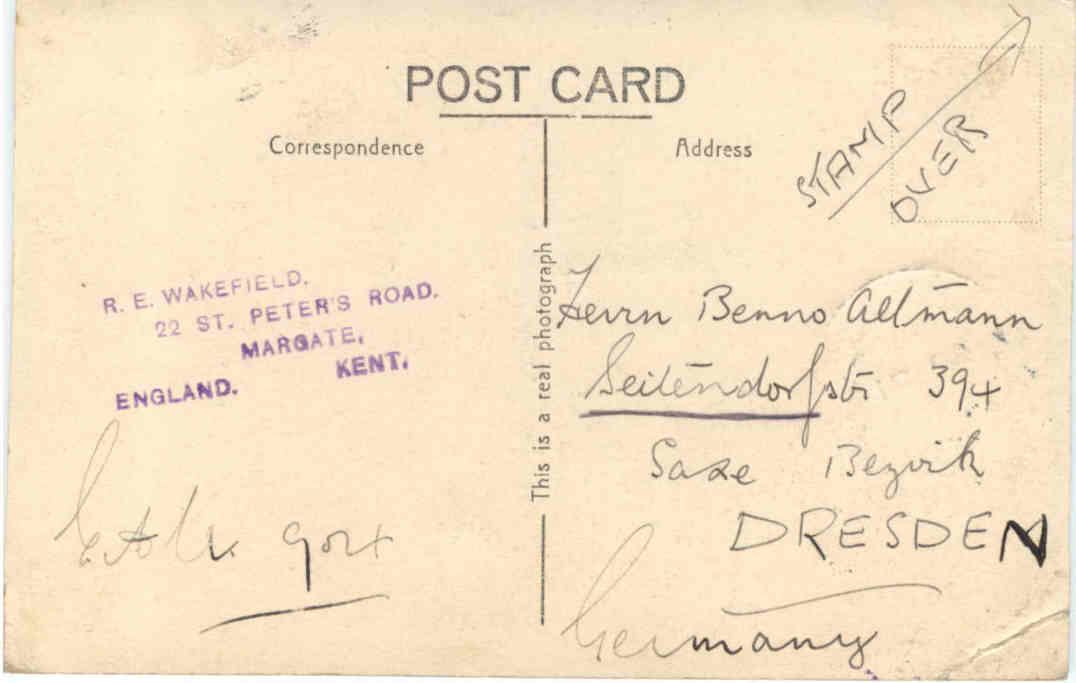 POST CARD
Correspondence
Address
STAMP
OVER
This is a real photograph
R. E. WAKEFIELD.
22 ST. PETER'S ROAD.
MARGATE,
KENT.
ENGLAND.
Herrn Benno Altmann
Seitendorfstr 394
Saxe Bezirk
DRESDEN
Germany